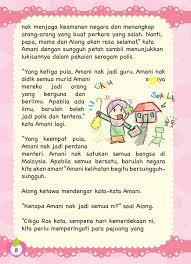 nak menjaga keamanan negara dan menangkap
orang-orang yang buat perkara yang salah. Nanti,
papa, mama dan Along akan rasa selamat," kata
Amani dengan sungguh petah sambil menunjukkan
lukisannya dalam pakaian seragam polis.
"Yang ketiga pula, Amani nak jadi guru. Amani nak
didik semua murid Amani
mereka jadi orang
yang berguna dan
berilmu. Apabila ada
ilmu, barulah boleh
jadi polis dan tentera,"
kata Amani lagi.
"Yang keempat pula,
Amani nak jadi perdana
menteri. Amani nak satukan semua bangsa di
Malaysia. Apabila semua bersatu, barulah negara
kita akan aman!" Amani kelihatan begitu bersungguh-
sungguh.
Along ketawa mendengar kata-kata Amani.
"Kenapa Amani nak jadi semua ni?" soal Along.
"Cikgu Ros kata, sempena hari kemerdekaan ni,
kita perlu memperingati para pejuang yang
8